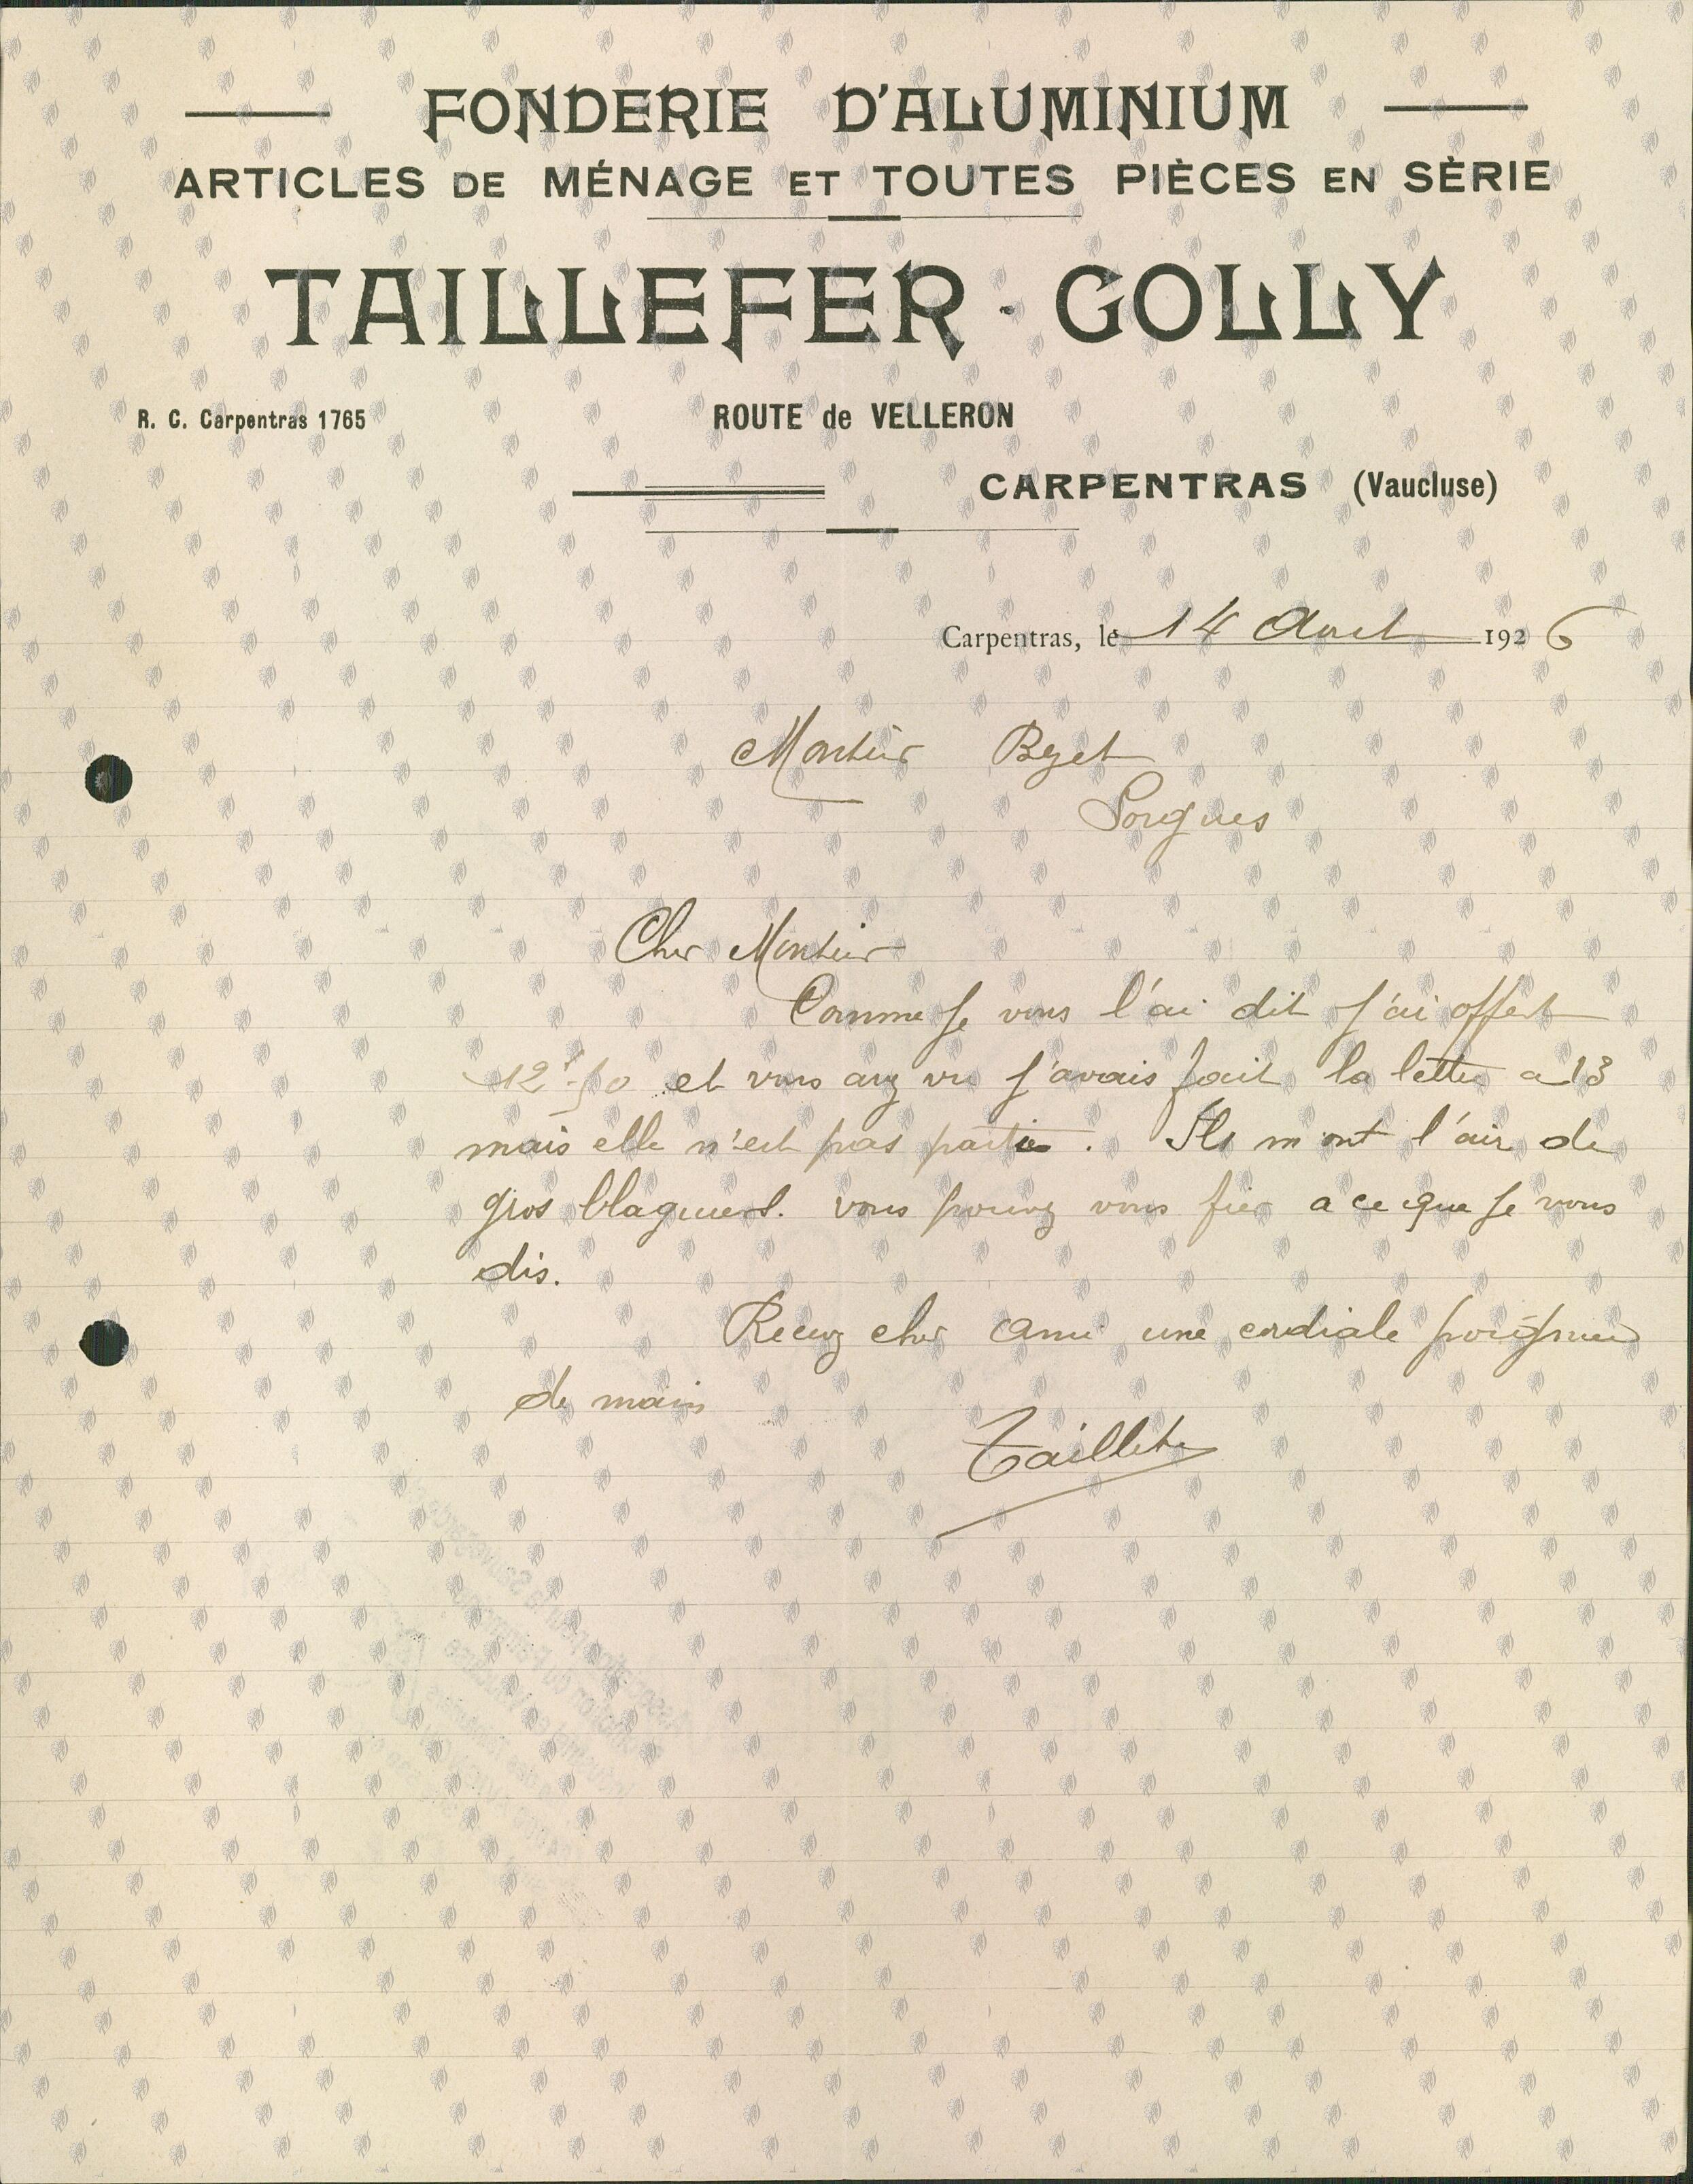 FONDERIE D'ALUMINIUM
ARTICLES DE MÉNAGE ET TOUTES PIÈCES EN SÈRIE
TAILLEFER - GOLLY
R. C. Carpentras 1765
ROUTE de VELLERON
CARPENTRAS (Vaucluse)
Carpentras, le 14 Avril 1926
Monsieur
Sorgues
Cher Monsieur
Comme je vous l'ai dit j'ai offert
12f50 et vous avez vu j'avais fait la lettre a 13
mais elle n'est pas partie. Ils m'ont l'air de
gros blagueurs. vous pouvez vous fier a ce que je vous
dis.
Recevez cher ami une cordiale poignée
de main
Taillefer